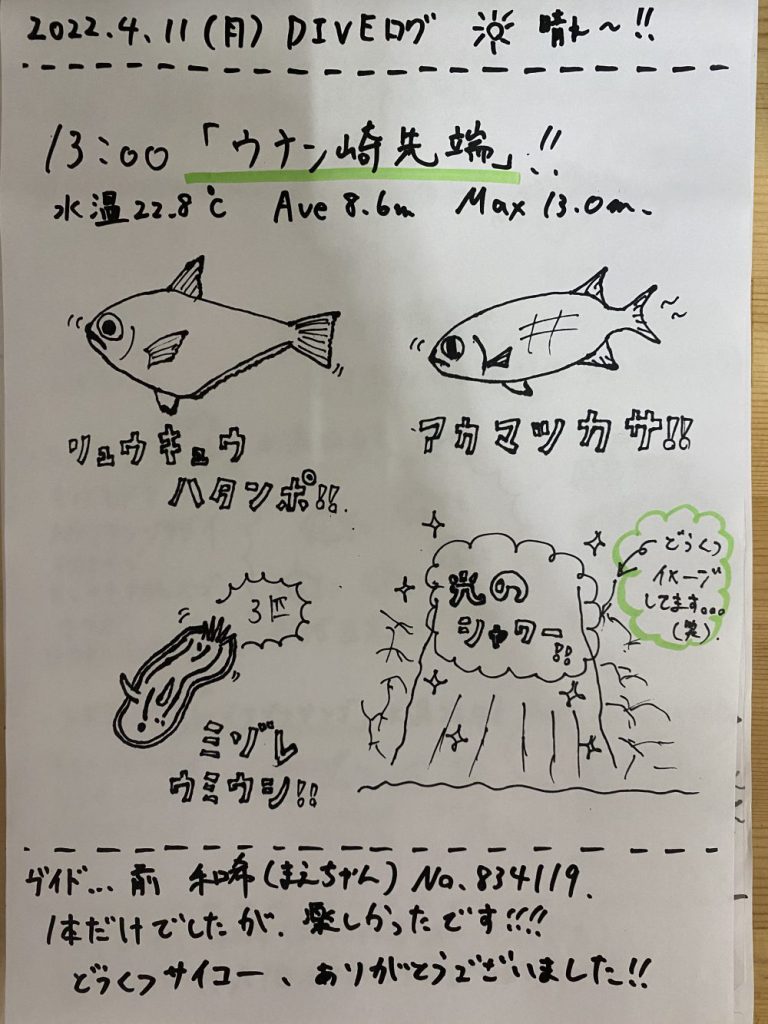 2022.4.11(月) DIVEログ 晴れ~!!
13:00「ウナン崎先端」!!
水温22.8℃ Ave 8.6m Max 13.0m.
リュウキュウ
ハタンポ!!
アカマツカサ!!
光の
シャワー!!
どうくつ
イメージ
してます...
(笑)
3匹
ミゾレ
ウミウシ!!
ガイド... 前 和希(まえちゃん) No.834119.
1本だけでしたが、楽しかったです!!!!
どうくつサイコー、ありがとうございました!!